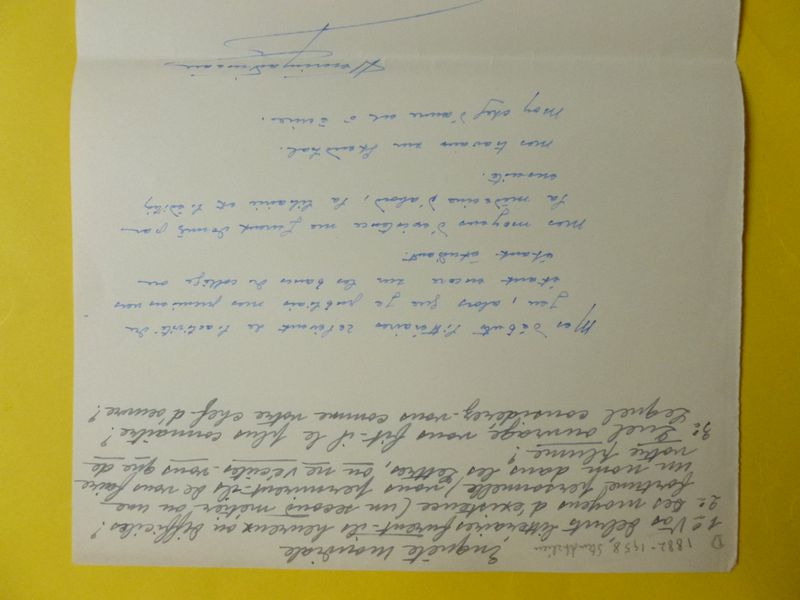 D 1882-1958, Stendhalien
Enquête Mondiale
1º Vos débuts littéraires furent-ils heureux ou difficiles?
2º Les moyens d'existence (un second métier ou une
fortune personnelle) vous permirent-ils de vous faire
un nom dans les Lettres, ou ne vécûtes-vous que de
votre plume?
3º Quel ouvrage vous fit-il le plus connaître?
Lequel considérez-vous comme votre chef-d'œuvre?
Mes débuts littéraires relèvent de l'activité du
jeu, alors que je publiais mes premiers vers
étant encore sur les bancs du collège ou
étant étudiant.
Mes moyens d'existence me furent donnés par
la médecine d'abord, la librairie et l'édition
ensuite.
mes travaux sur Stendhal.
Mon chef d'œuvre est à écrire.